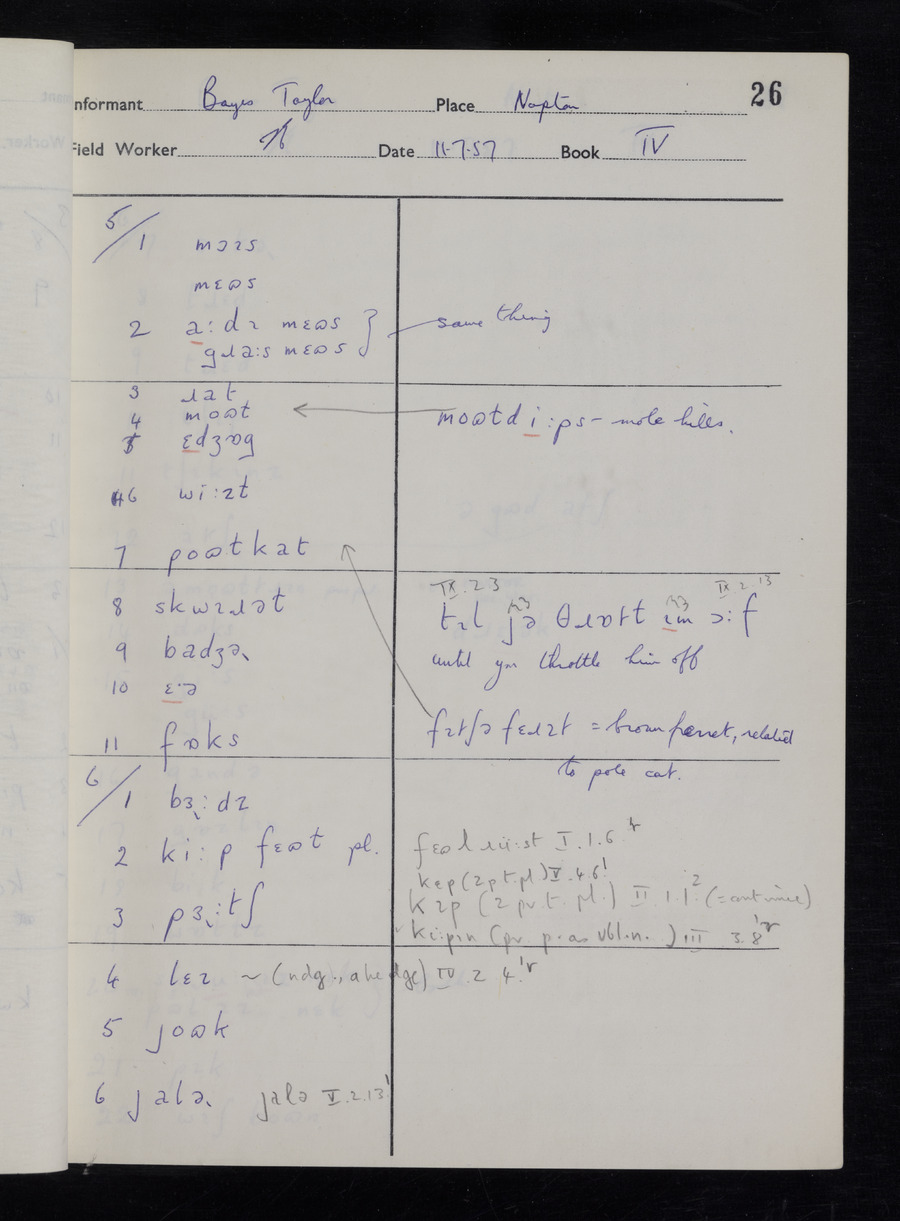 26
Informant Bayes Taylor Place Napton
Field Worker Date 11-7-57 Book IV
5/1 mɔɪs
mɛɷs
2 a:dɪ mɛɷs } same thing
gɹa:s mɛɷs
3 ɹat
4 moɷt moɷtdi:ps - mole hills.
5 ɛdʒɒg
6 wi:zt
7 poɷtkat
IX.2.3 IX.2.13
8 skwɪɹət tɪl jə θɹɒtt ɪm ɔ:f
9 badʒə˞ until you throttle him off
10 ɛ·ə
11 fɒks fɪtʃə fɛɹɪt = brown ferret, related
to pole cat.
6/1 bɜ˞:dɪ
2 ki:p fɛɷt pl. I.1.6
kɛp (2 p.t.pl) V.4.6
kɪp (2 pr.t. pl.) II.1.1 (= continue)
3 pɜ˞:tʃ ki:pin (pr. p. as vbl.n.) III 3.8
4 lɛɪ ~ IV.2.4
5 joɷk
6 jalə˞ jalə V.2.13